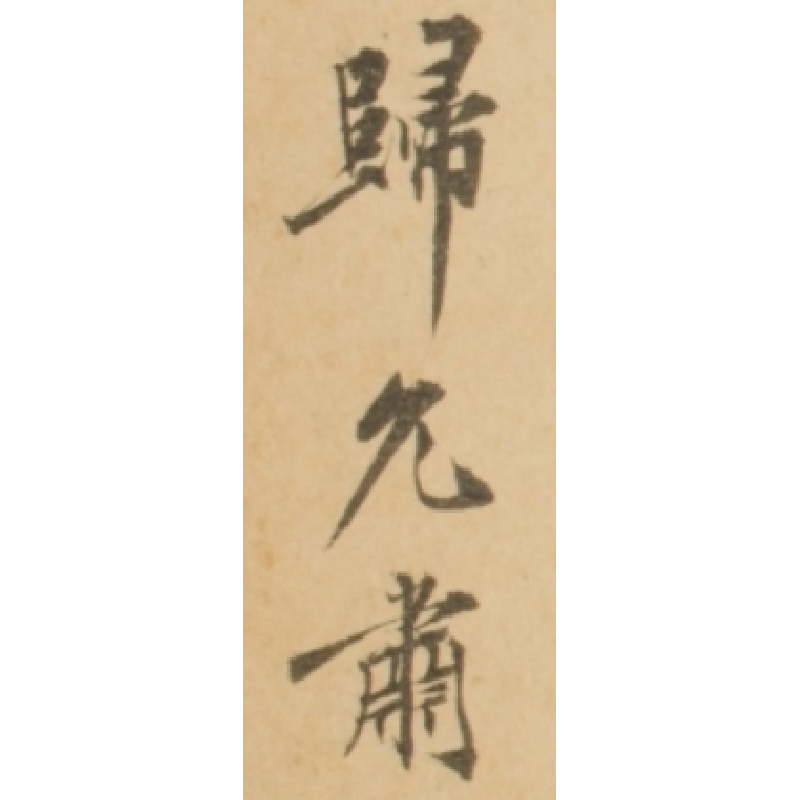 歸允肅